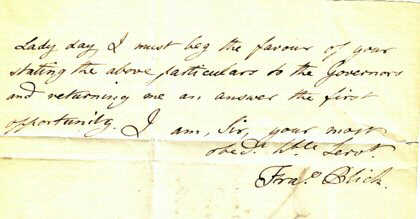 Lady day, I must beg the favour of your
stating the above particulars to the Governors
and returning me an answer the first
opportunity. I am, Sir, your most
obedt. Hble. Servt.
Fras. Blick.